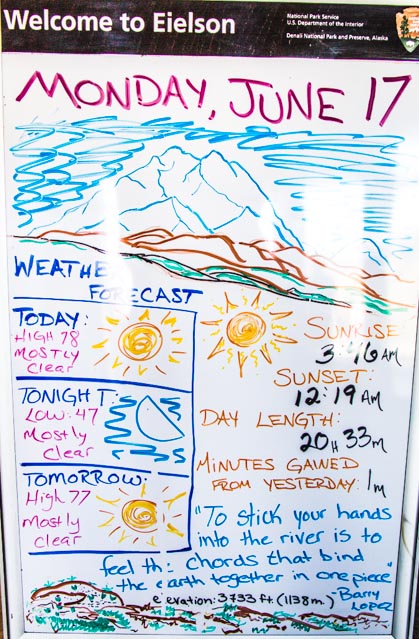 Welcome to Eielson
National Park Service
U.S. Department of the Interior
Denali National Park and Preserve, Alaska
MONDAY, JUNE 17
WEATHE
FORECAST
TODAY:
HIGH 78
MOSTLY
Clear
TONIGHT:
LOW: 47
mostly
clear
TOMORROW:
High 77
mostly
clear
SUNRISE
3:46 AM
SUNSET:
12:19 AM
DAY LENGTH:
20 H 33m
MINUTES GAINED
FROM YESTERDAY: 1m
"To stick your hands
into the river is to
feel th: chords that bind
the earth together in one piece"
-Barry
Lopez
e evation: 3733 ft (1138m)